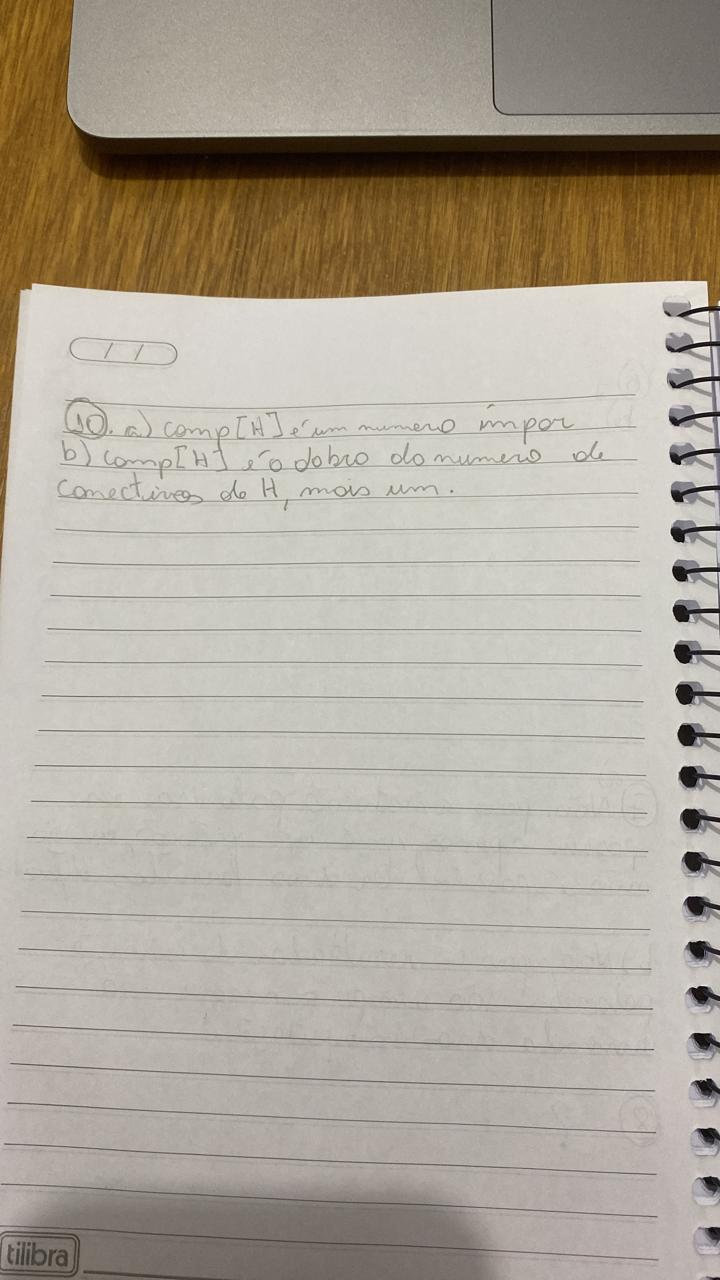 10. a) comp[H] é um numero ímpar
b) comp[H] é o dobro do numero de
conectivos de H, mais um.
tilibra